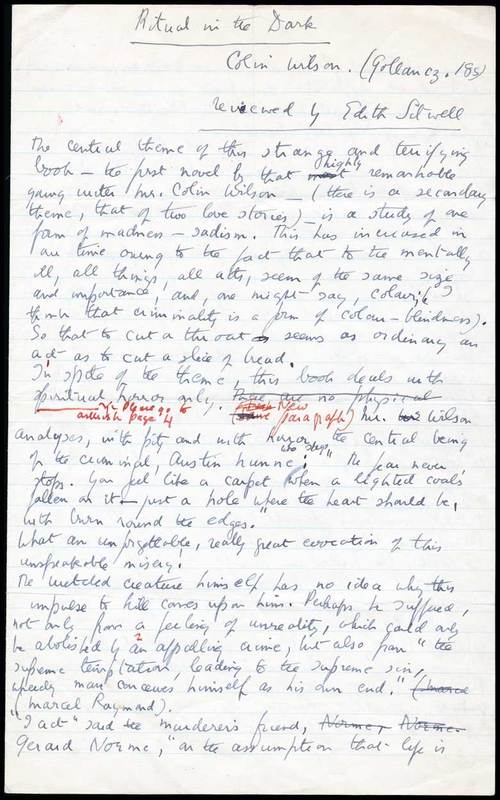 Ritual in the Dark
Colin Wilson. (Gollancz. 18s)
reviewed by Edith Sitwell
The central theme of this strange and terrifying
highly
book — the first novel by that most remarkable
young writer Mr. Colin Wilson — (there is a secondary
theme, that of two love stories) — is a study of one
form of madness — sadism. This has increased in
our time owing to the fact that to the mentally
ill, all things, all acts, seem of the same size
and importance, and, one might say, colour (I
think that criminality is a form of colour-blindness).
So that to cut a throat seems as ordinary an
act as to cut a slice of bread.
In spite of the theme, this book deals with
spiritual horror only. There are no physical
Please go to
asterisk page 4
(New
paragraph) Mr. Wilson
analyses, with pity and with horror, the central being
of the criminal, Austin Nunne: "The fear never
stops. You feel like a carpet when a lighted coal's
fallen on it — just a hole where the heart should be,
with burn round the edges."
What an unforgettable, really great evocation of this
unspeakable misery!
The wretched creature himself has no idea why this
impulse to kill comes upon him. Perhaps he suffered,
not only from a feeling of unreality, which could only
be abolished by an appalling crime, but also from "the
supreme temptation, leading to the supreme sin,
whereby man conceives himself as his own end."
(Marcel Raymond).
"I act" said the murderer's friend, Norme, Norme
Gerard Norme, "on the assumption that life is